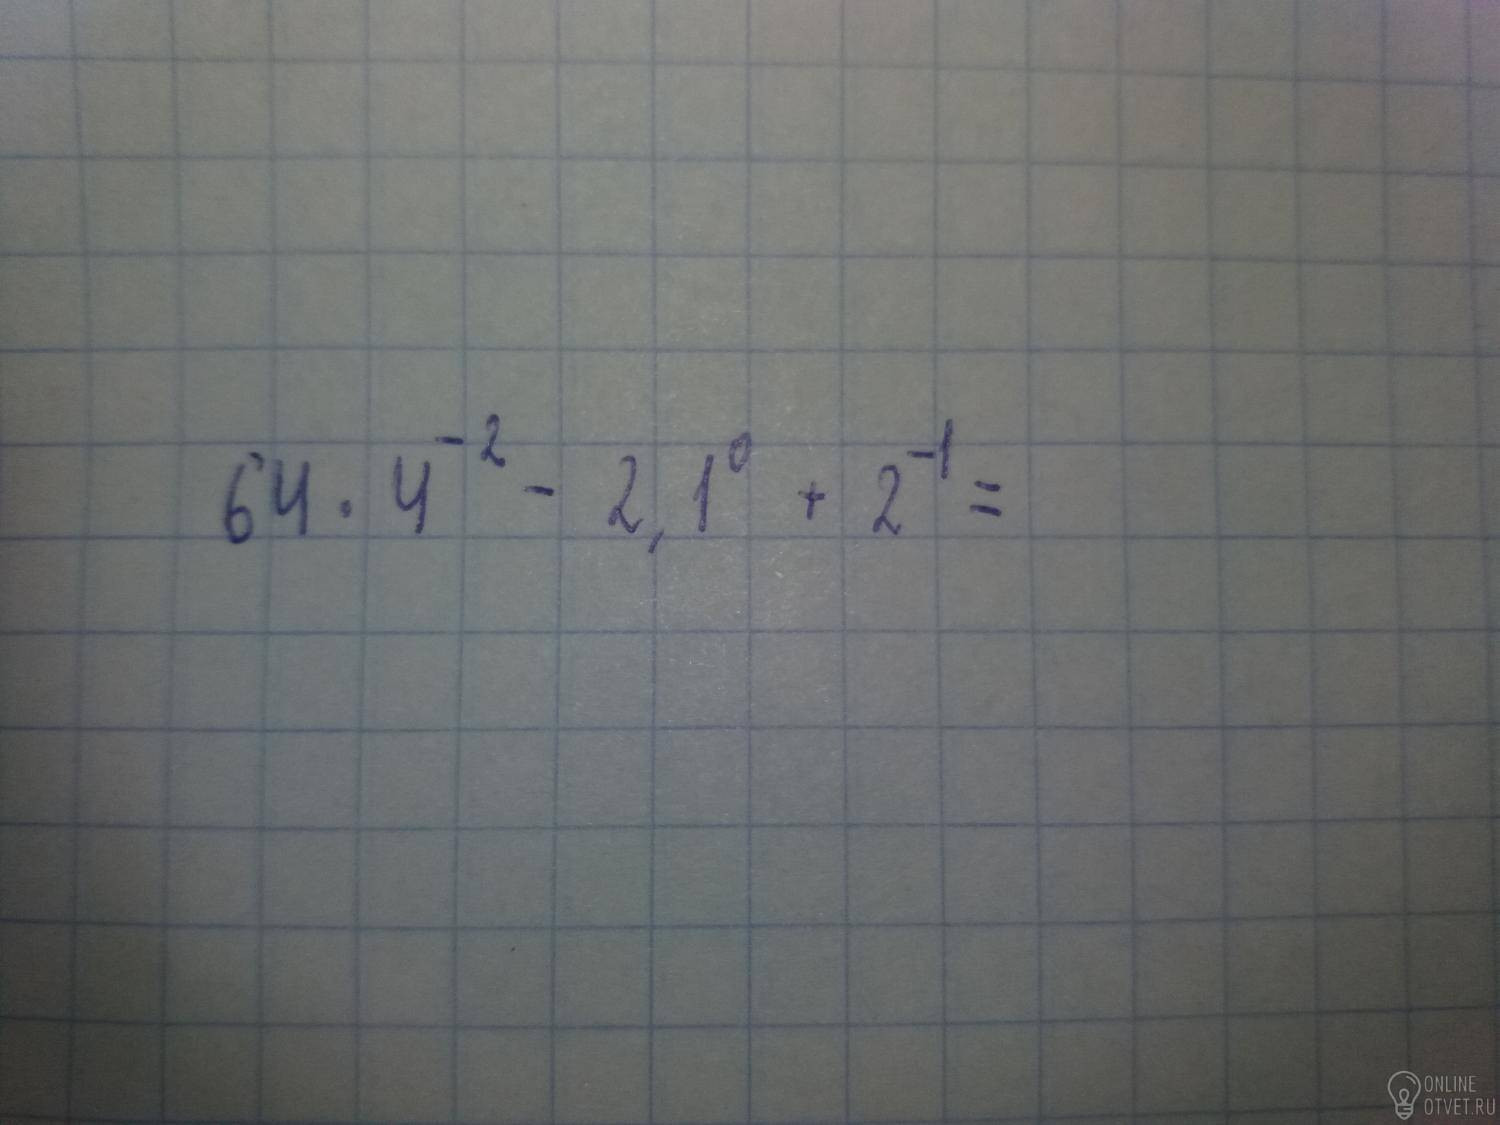 64 · 4⁻² - 2,1⁰ + 2⁻¹ =
ONLINE
OTVET.RU